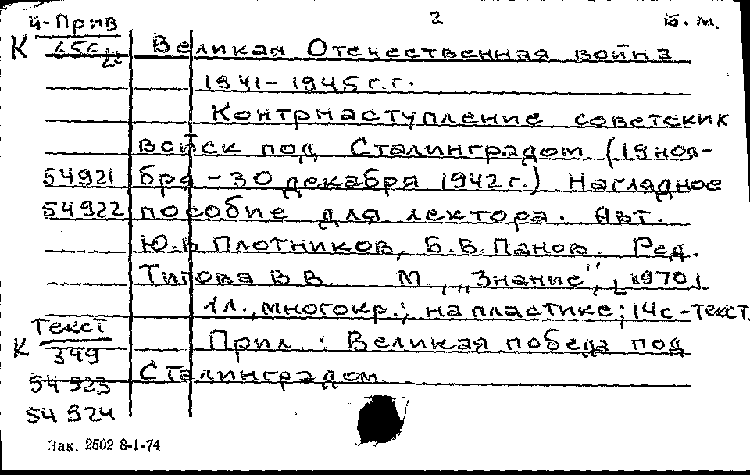 4-Прив 2 Б.м.
К 656
Великая Отечественная война
1941-1945 г.г.
Контрнаступление советских
войск под Сталинградом (19 ноя-
54921 бря - 30 декабря 1942 г.) Наглядное
54922 пособие для лектора. Авт.
Ю.В Плотников, Б.В. Панов. Ред.
Титова В.В. М., "Знание", 1970.
1л., многокр.; на пластике; 14с-текст
Текст
К 349
Прил.: Великая победа под
54923 Сталинградом
54924
Зак. 2502 8-1-74